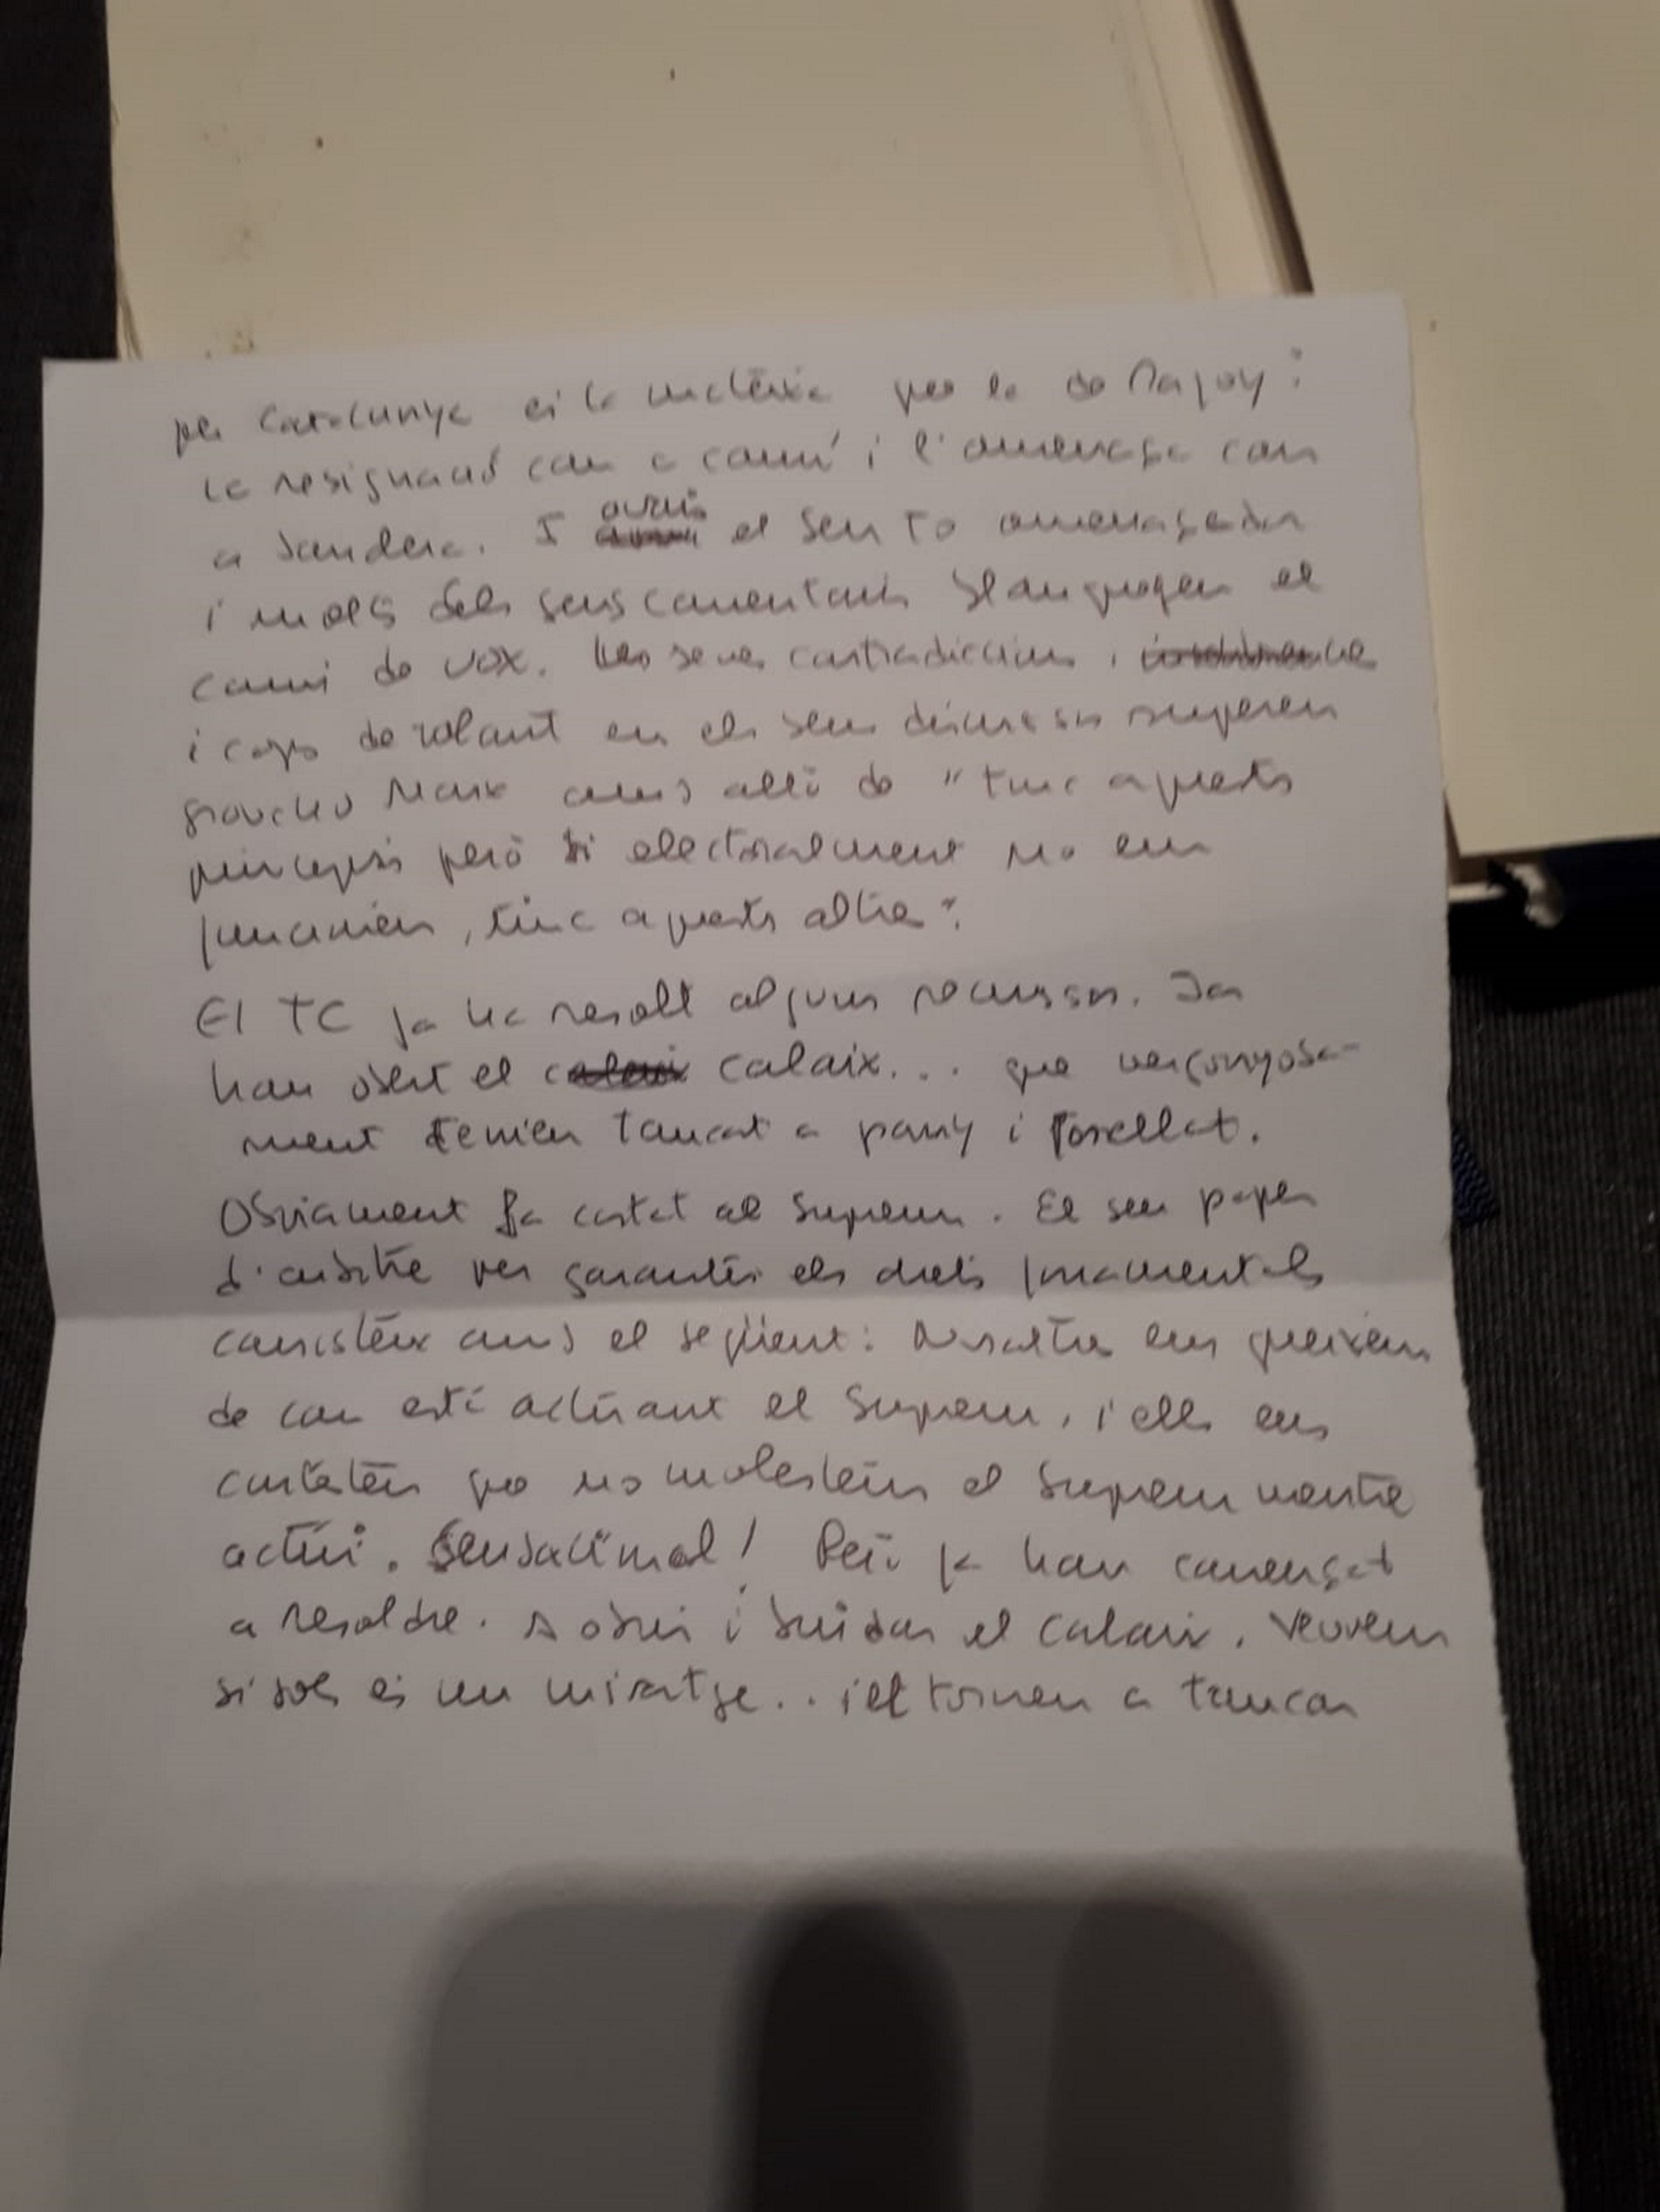 per Catalunya és la mateixa que la de Rajoy:
la resignació com a camí i l'amenaça com
a bandera. I avui el seu to amenaçador
i molts dels seus comentaris blanquegen el
camí de VOX. Les seves contradiccions,
i cops de volant en els seus discursos superen
Groucho Marx amb allò de "tinc aquests
principis però si electoralment no em
funcionen, tinc aquests altres".
El TC ja ha resolt alguns recursos. Ja
han obert el calaix... que vergonyosa-
ment tenien tancat a pany i forellat.
Obviament fa costat al Suprem. El seu paper
d'arbitre per garantir els drets fonamentals
consisteix amb el següent: Nosaltres ens queixem
de com està actuant el Suprem, i ells ens
contesten que no molestem el Suprem mentre
actuï. Sensacional! Però ja han començat
a resoldre. A obrir i buidar el calaix. Veurem
si sols és un miratge... i el tornen a tancar